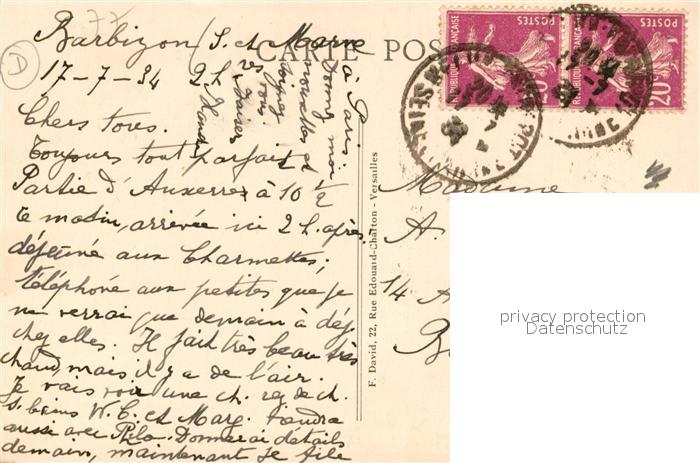 77
D
Barbizon (S. et Marne
17-7-34 2 h.
à Paris.
Donnez moi
nouvelles et
soyez
tous
CARTE POSTALE
Chers tous.
Toujours tout parfait
Partie d'Auxerre à 10 1/2
le matin, arrivée ici 2 h. après.
déjeuné aux Charmettes,
téléphoné aux petites que je
ne verrai que demain à déj.
chez elles. Il fait très beau très
chaud, mais il y a de l'air.
Je vais voir une ch. rez de ch.
s. bains W. C. et Marg. viendra
aussi avec Donnerai détails
demain, maintenant je file
F. David, 22, Rue Edouard-Charton - Versailles
RÉPUBLIQUE FRANÇAISE
POSTES
20
RÉPUBLIQUE FRANÇAISE
POSTES
20
Madame
A.
14 A
privacy protection
Datenschutz